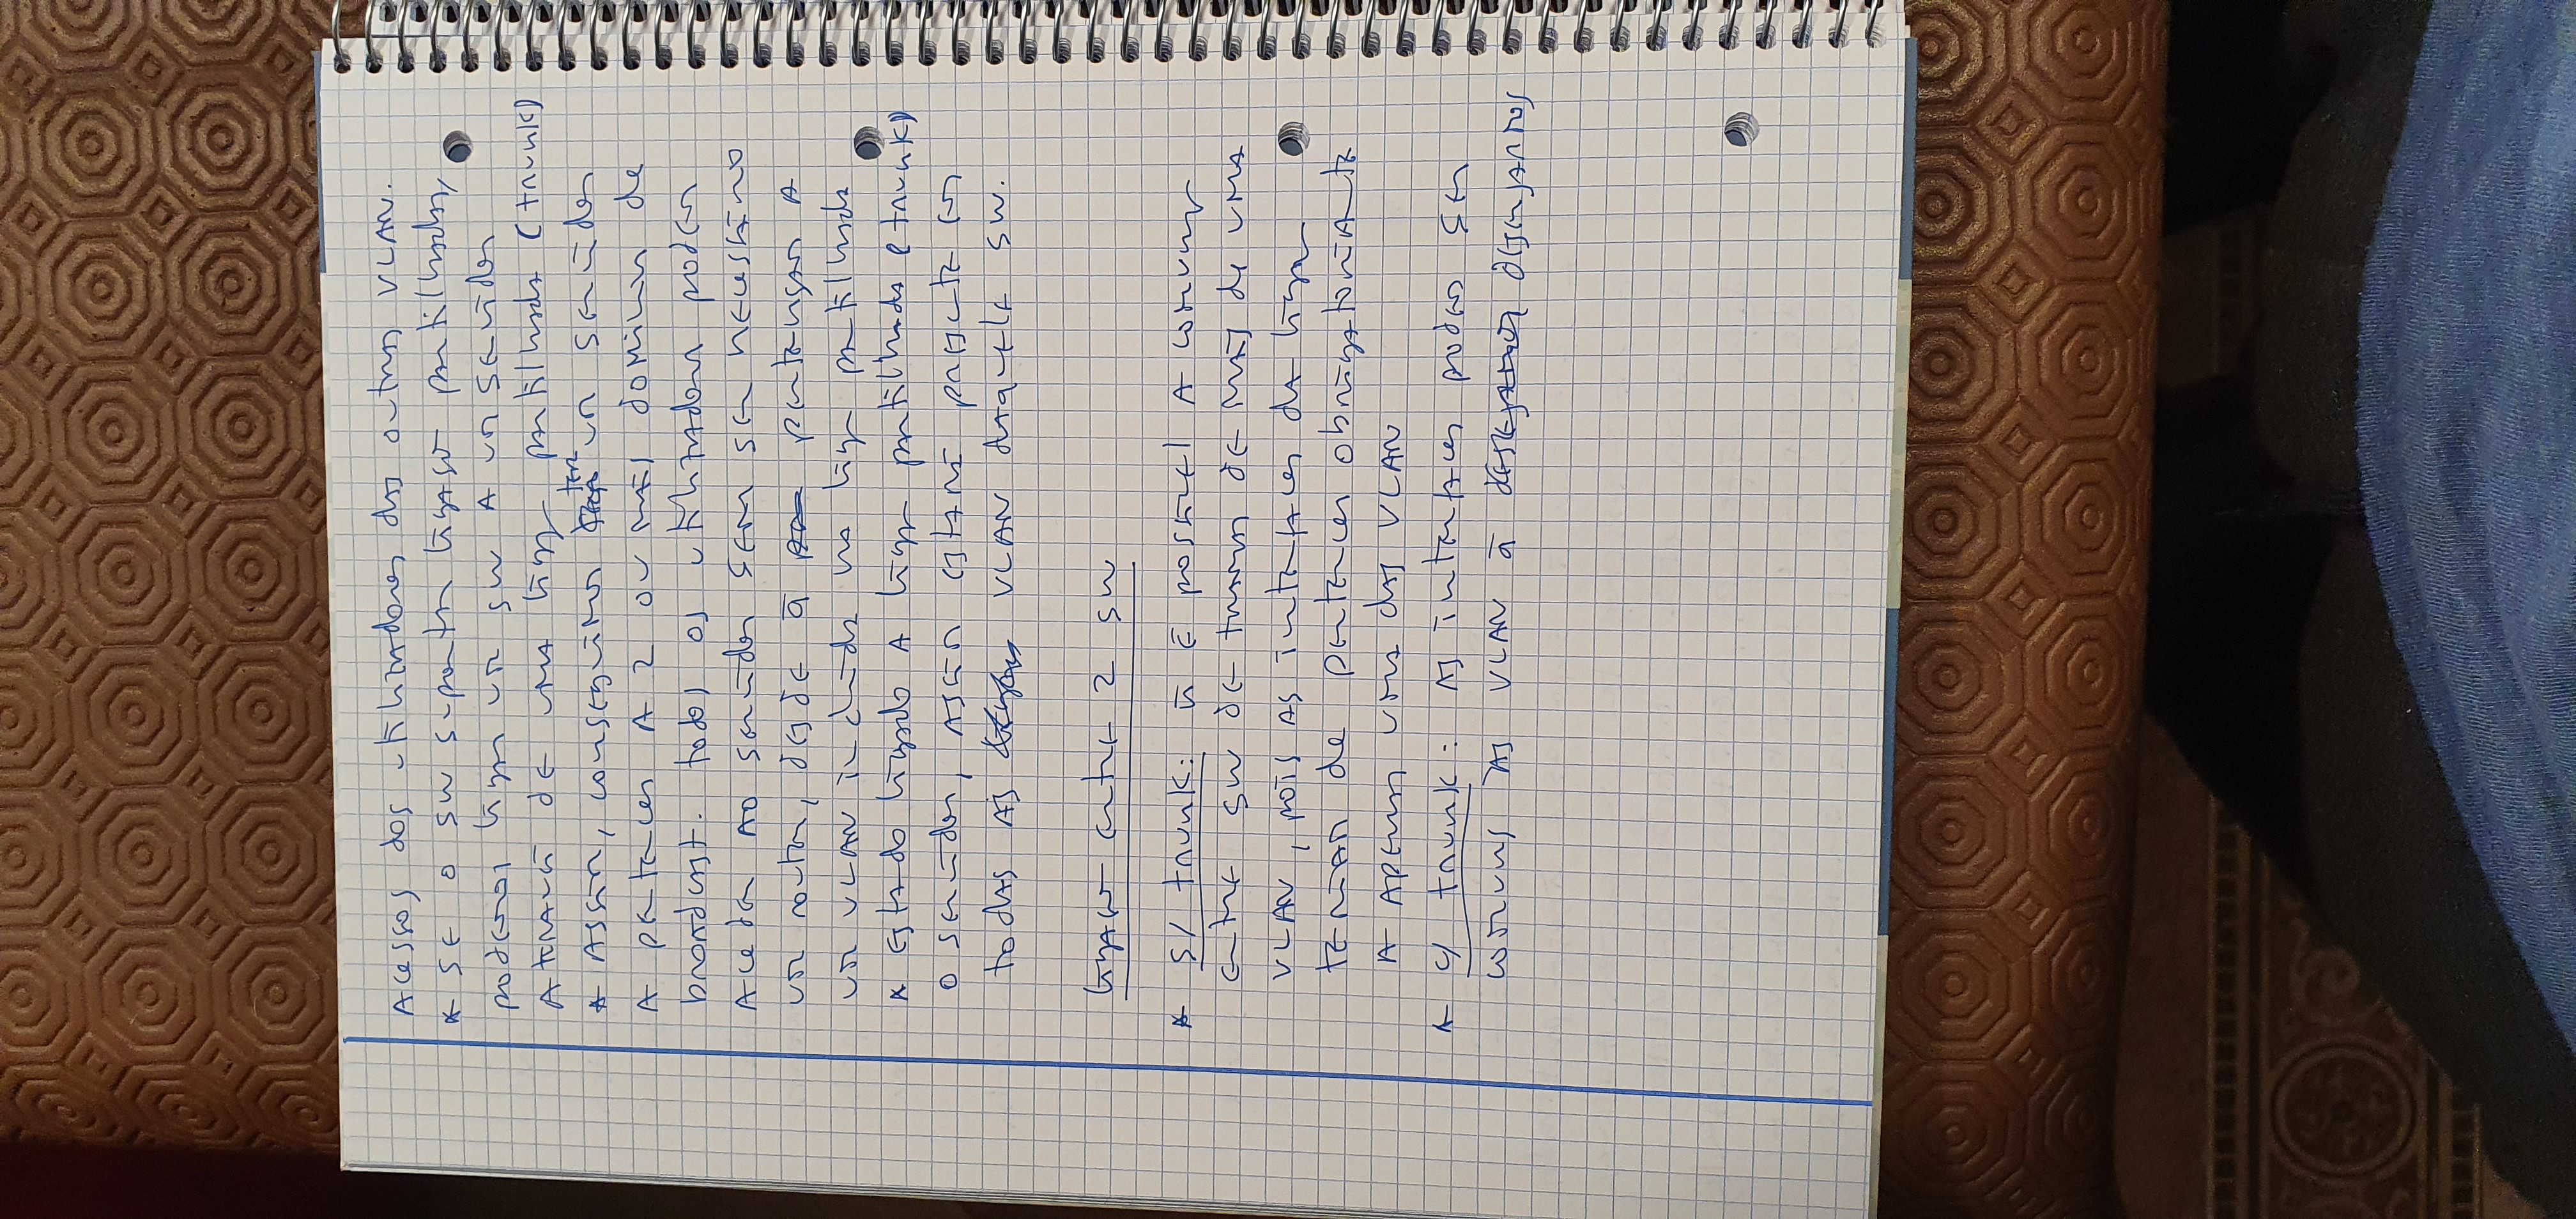 Acessos dos utilizadores das outras VLAN.
* SE o SW suporta ligação partilhada,
podemos ligar um SW A um servidor
Através de uma ligação partilhada (trunk)
* Assim, conseguimos ter um servidor
A pertencer A 2 ou mais domínios de
broadcast. todos os utilizadores podem
Aceder AO servidor sem ser necessário
um router, desde q̄ pertençam A
um VLAN incluída na ligação partilhada
* Estando ligado A ligação partilhada (trunk)
o servidor, Assim estará presente em
todas As VLAN daquele SW.
ligação entre 2 SW
* S/ trunk: ñ é possível A comunicação
entre SW de tramas de mais de uma
VLAN, pois As interfaces da ligação
teriam de pertencer obrigatoriamente
A Apenas uma das VLAN
* C/ trunk: As interfaces podem ser
comuns às VLAN q̄ desejamos